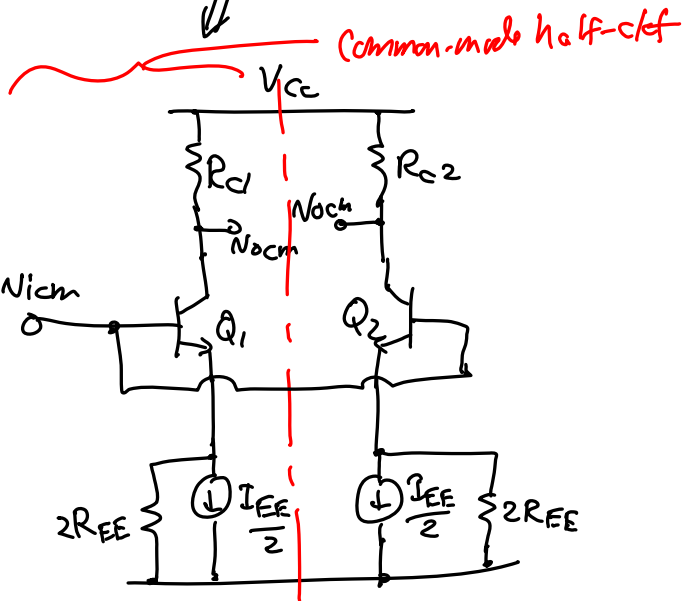 Common-mode half-ckt
Vcc
Rc1
Rc2
vocm
vocm
vicm
Q1
Q2
2REE
IEE/2
IEE/2
2REE